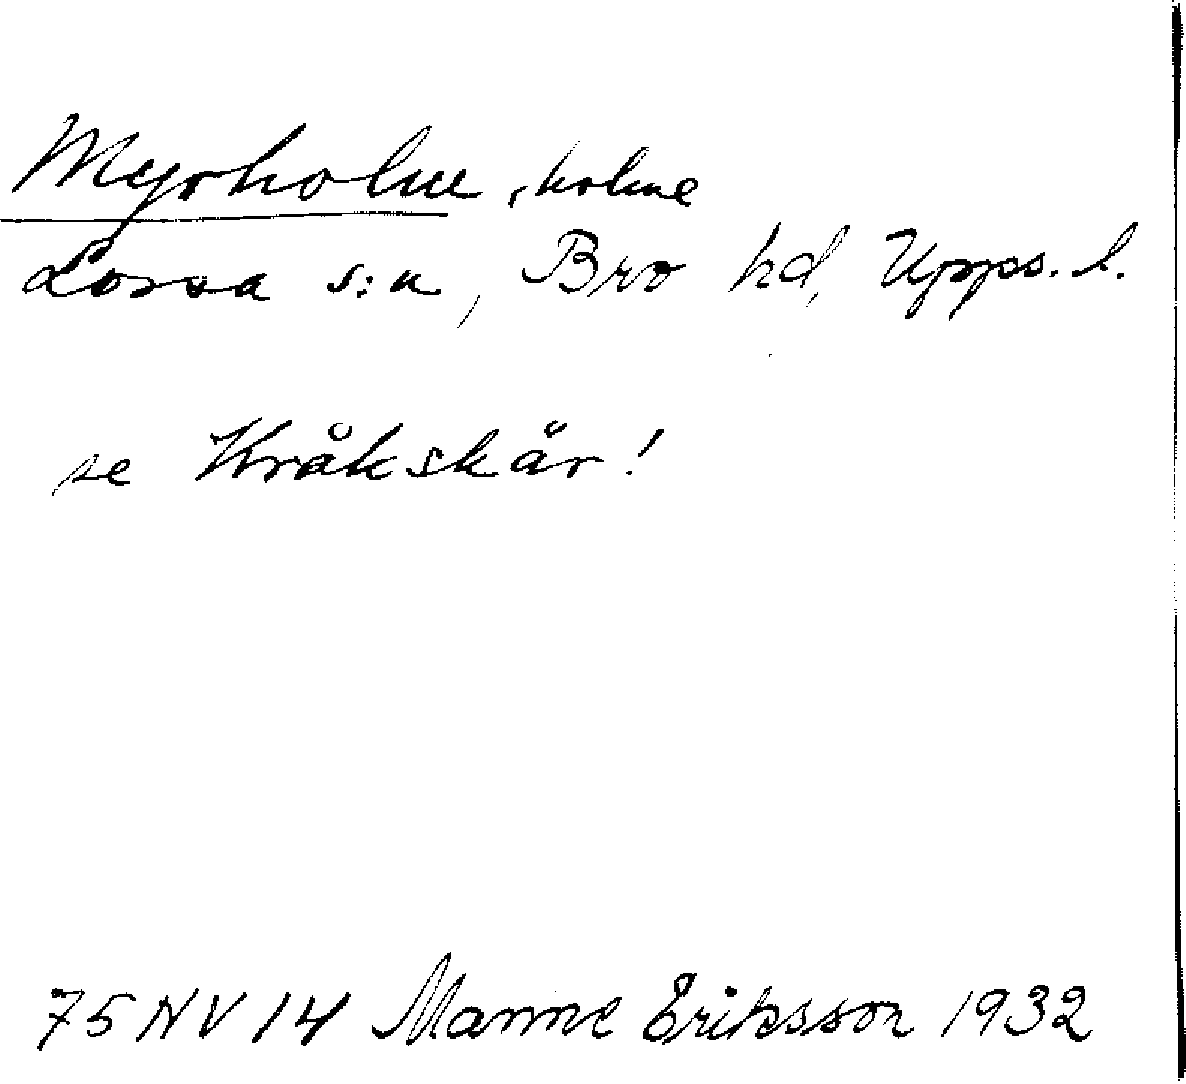 Myrholme, holme
Lossa s:n, Bro hd, Upps. l.
se Kråkskär!
75 NV 14 Manne Eriksson 1932